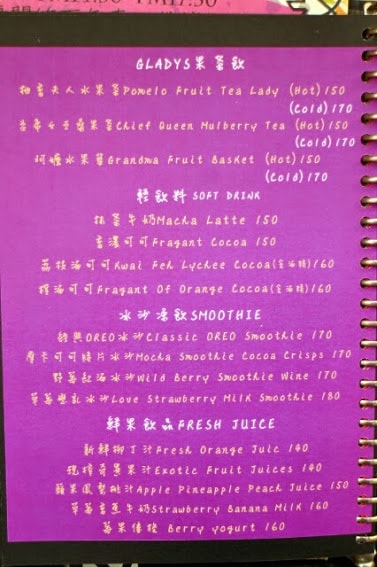 GLADYS果茶飲
柚香夫人水果茶Pomelo Fruit Tea Lady (Hot)150
(Cold)170
Chief Queen Mulberry Tea (Hot)150
(Cold)170
阿嬤水果茶Grandma Fruit Basket (Hot)150
(Cold)170
輕飲料SOFT DRINK
抹茶牛奶Macha Latte 150
香濃可可Fragant Cocoa 150
荔枝酒可可Kwai Feh Lychee Cocoa(含酒精)160
橙酒可可Fragant Of Orange Cocoa(含酒精)160
冰沙凍飲SMOOTHIE
經典OREO冰沙Classic OREO Smoothie 170
摩卡可可脆片冰沙Mocha Smoothie Cocoa Crisps 170
野莓紅酒冰沙Wild Berry Smoothie Wine 170
草莓戀乳冰沙Love Strawberry Milk Smoothie 180
鮮果飲品FRESH JUICE
新鮮柳丁汁Fresh Orange Juic 140
Exotic Fruit Juices 140
蘋果鳳梨桃汁Apple Pineapple Peach Juice 150
草莓香蕉牛奶Strawberry Banana Milk 160
莓果優格 Berry yogurt 160